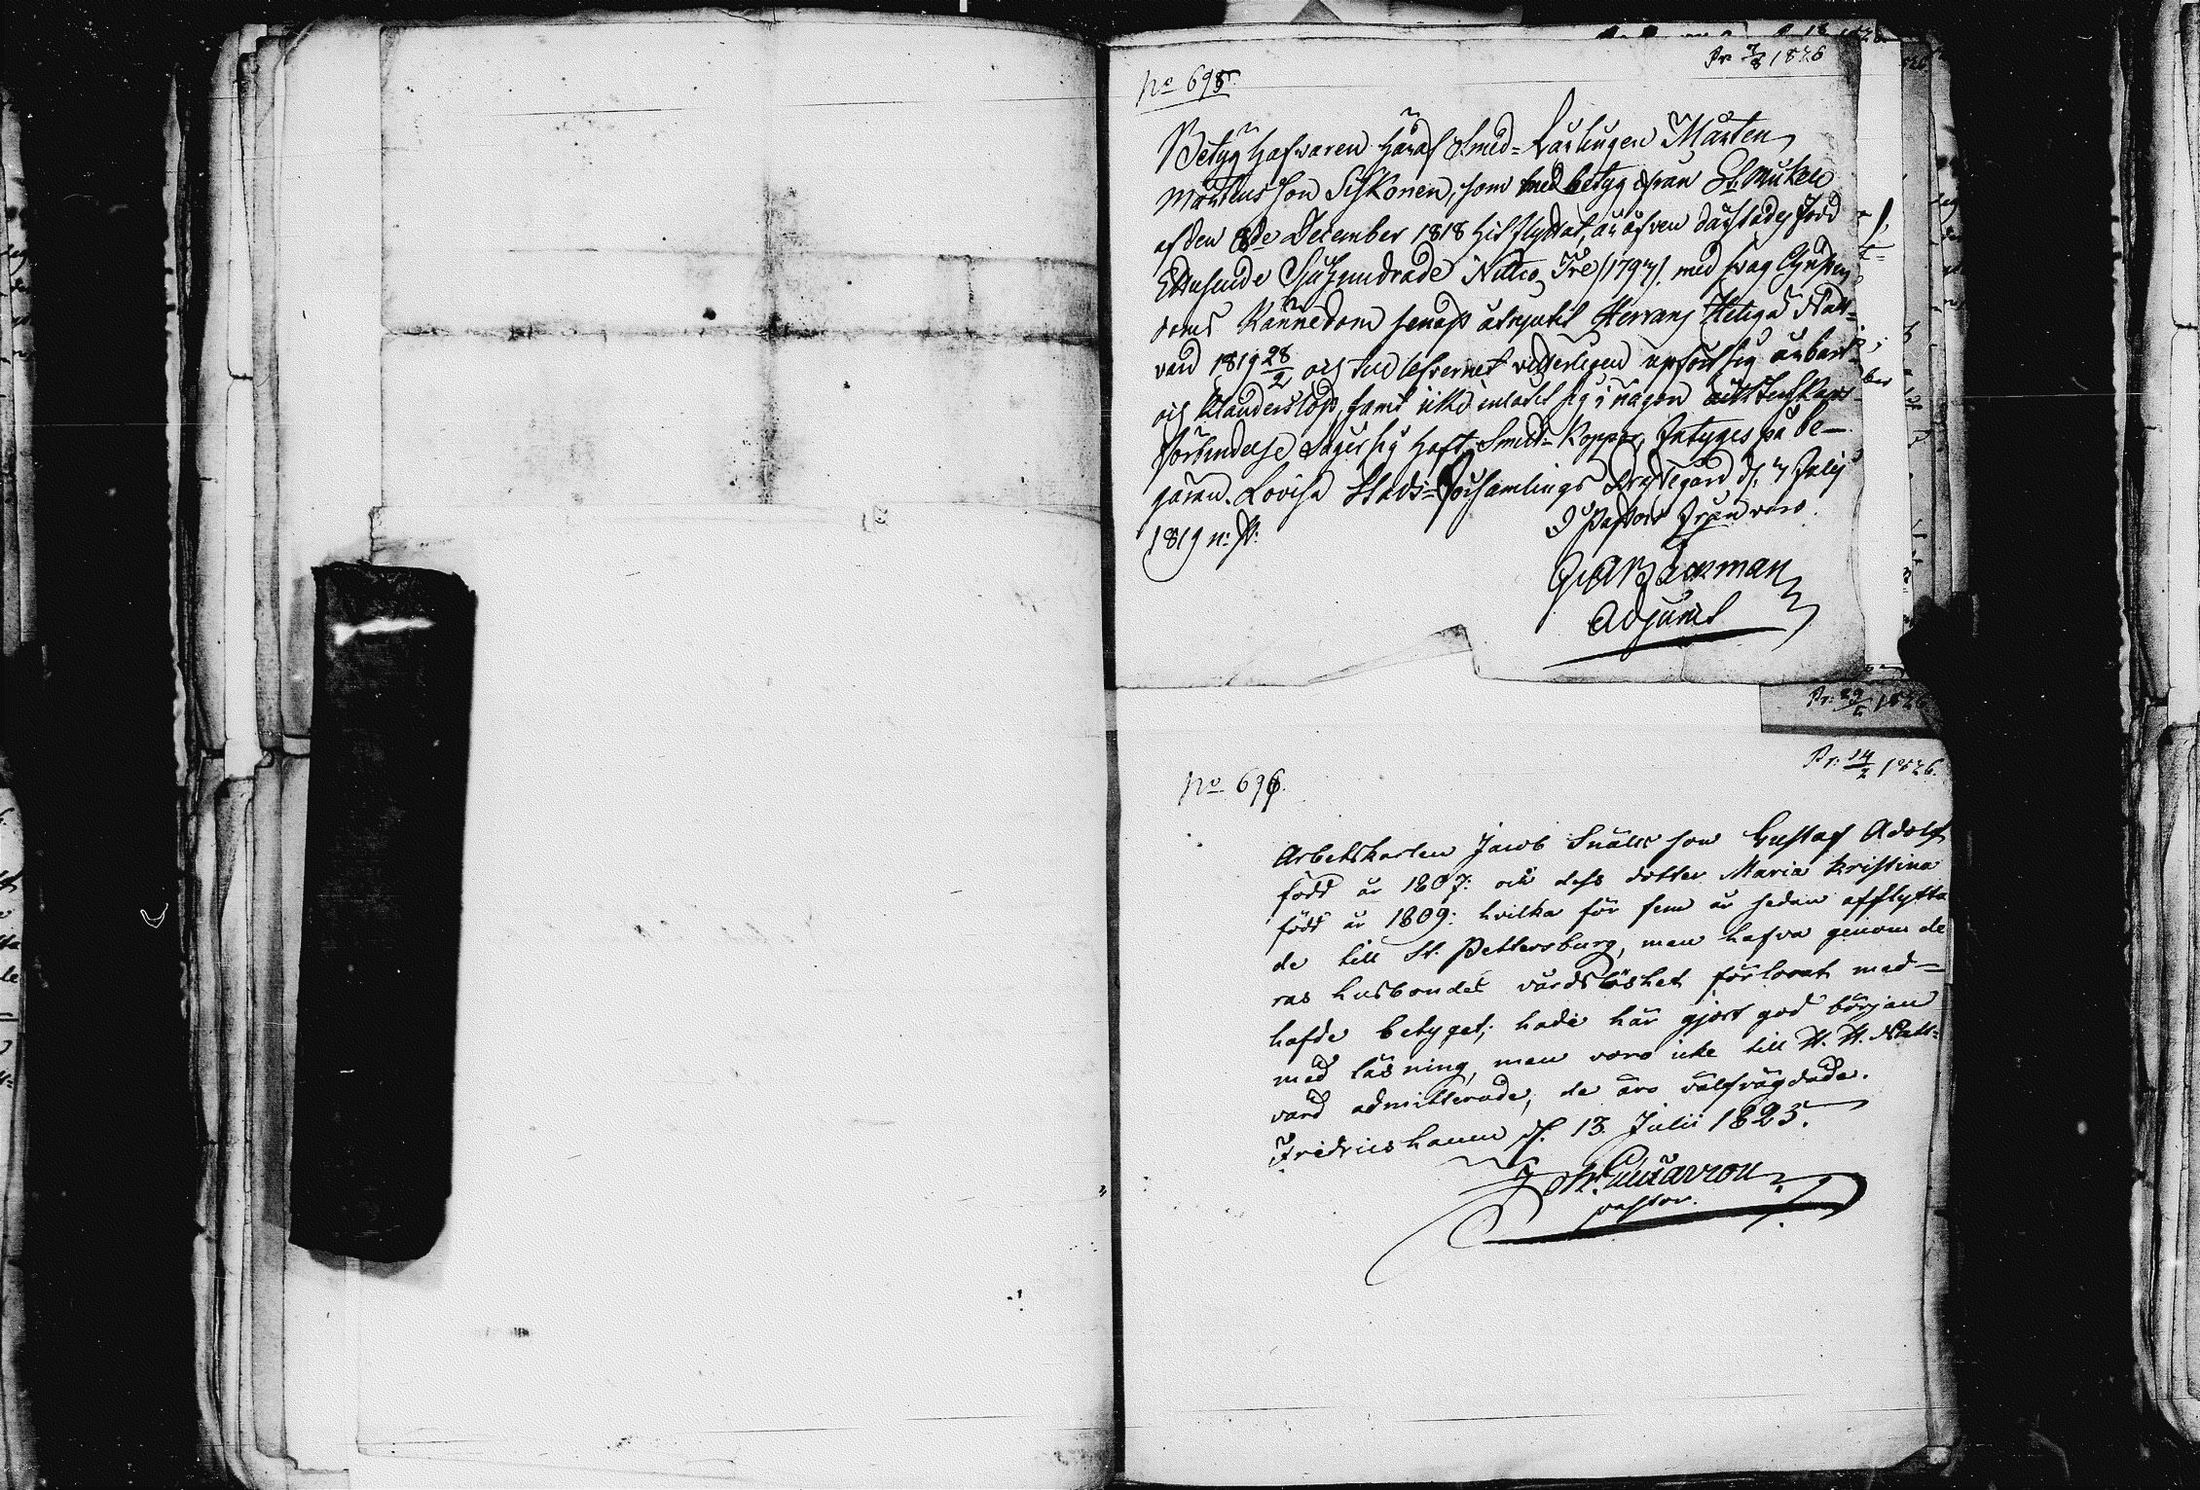 Pr. 7/8 1826
No 695.
Betyg hafvaren häraf Smed=Lärlingen Mårten
Mårtensson Sihkonen, som med betyg ifrån St. Mickels
af den 8de December 1818 hit flyttat, är äfven därstädes född
Ettusende Sjuhundrade Nittio Tre /1793/. med svag Christen
doms Kännedom senast åtnjutit Herrans Heliga Natt=
vard 1819 28/2 och till lefvernet veterligen uppfört sig ärbart
och klanderslöst, samt icke inlåtit sig i någon äktenskaps
förbindelse Säger sig haft Smed=Koppor, Intyges på be=
gäran. Lovisa Stads=Församlings Prestegård d. 7 Julij
1819 n: st:
I Pastors frånvaro.
Backman
Adjunct
Pr: 29/6 1826
Pr: 14/2 1826.
No 696.
Arbetskarlen Jacob Snälls son Gustaf Adolf
född år 1807: och dess dotter Maria Kristina
född år 1809: hvilka för fem år sedan afflytta
de till St. Pettersburg, men hafva genom de
ras husbondes vårdslöshet förlorat med=
hafde betyget; hade här gjort god början
med läsning, men voro icke till H. H. Natt=
vard admitterade; de äro välfrägdade.
Fredricshamn d. 13. Julii 1825.
Joh. Gustavson
pastor.